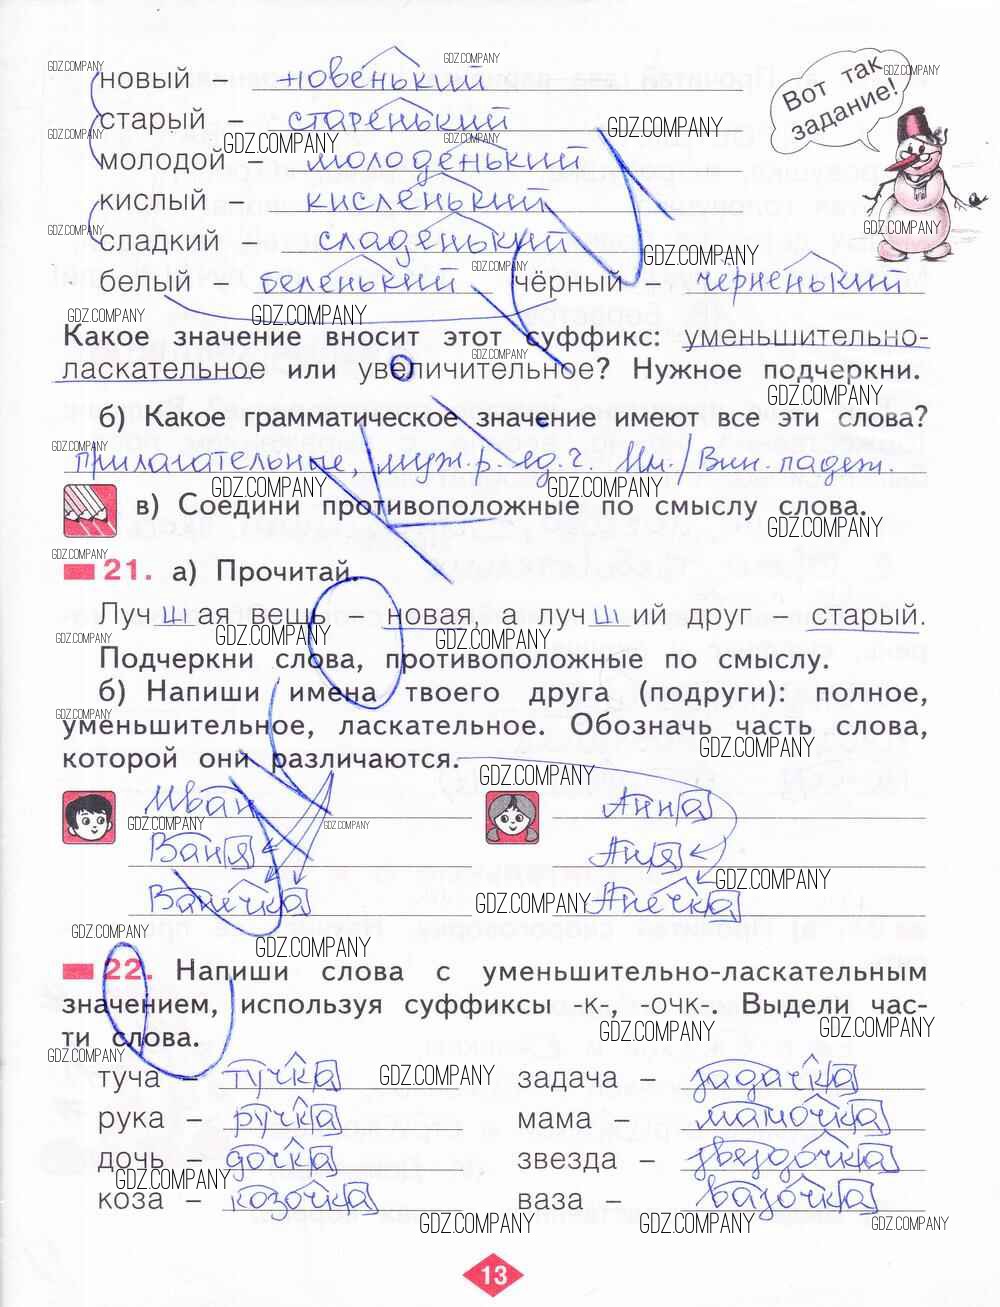 новый новенький
старый – старенький
молодой – молоденький
кислый – кисленький
сладкий – сладенький
белый – беленький чёрный – чёрненький
Вот так
задание!
Какое значение вносит этот суффикс: уменьшительно-
ласкательное или увеличительное? Нужное подчеркни.
б) Какое грамматическое значение имеют все эти слова?
прилагательные, муж.р. ед.ч. Им./Вин. падеж.
в) Соедини противоположные по смыслу слова.
21. а) Прочитай.
Луч ш ая вещь – новая а луч ш ий друг – старый.
Подчеркни слова, противоположные по смыслу.
б) Напиши имена твоего друга (подруги): полное,
уменьшительное, ласкательное. Обозначь часть слова,
которой они различаются.
Иван Анна
Ваня Аня
Ванечка Анечка
22. Напиши слова с уменьшительно-ласкательным
значением, используя суффиксы -к-, -очк-. Выдели час-
ти слова.
туча – тучка задача – задачка
рука – ручка мама – мамочка
дочь – дочка звезда – звездочка
коза – козочка ваза – вазочка
13
GDZ.COMPANY